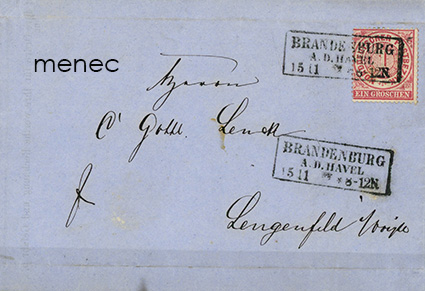 menec
BRANDENBURG
A.D. HAVEL
15 11 8-12N
EIN GROSCHEN
Herrn
C' Gottl. Lenck
BRANDENBURG
A.D. HAVEL
15 11 8-12N
Lengenfeld